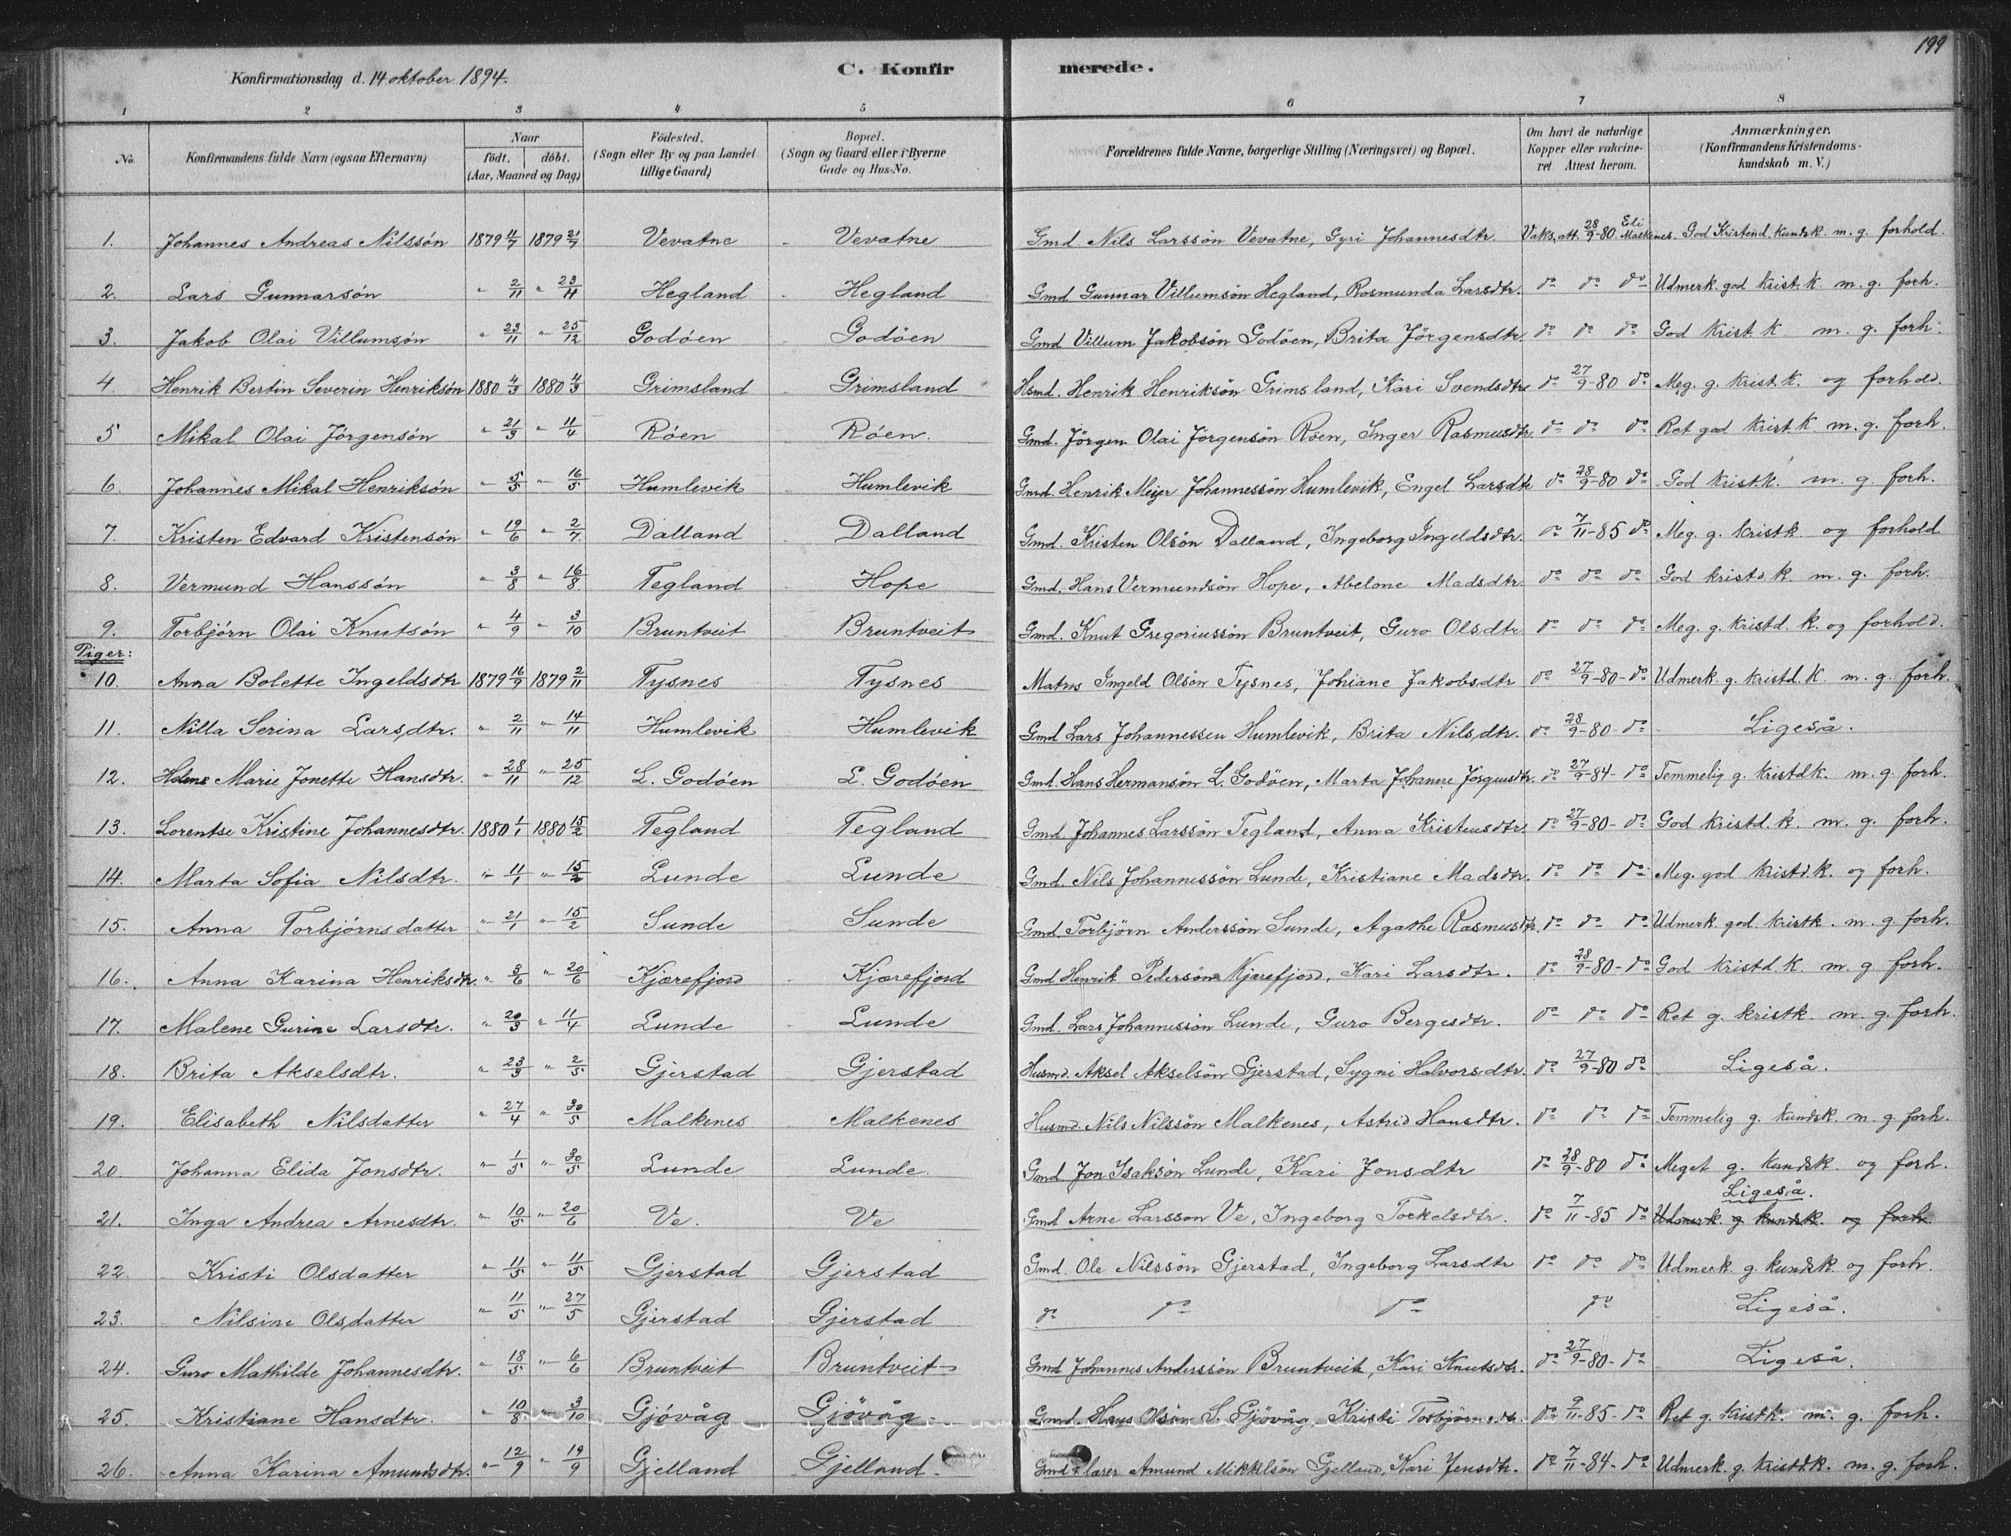 199
Konfirmationsdag d. 14 oktober 1894.
C. Konfirmerede.
1 2 3 4 5 6 7 8
No. Konfirmandens fulde Navn (ogsaa Efternavn) Naar født. døbt. (Aar, Maaned og Dag) Födested. (Sogn eller By og paa Landet tillige Gaard) Bopæl. (Sogn og Gaard eller i Byerne Gade og Hus-No. Forældrenes fulde Navne, borgerlige Stilling (Næringsvei) og Bopæl. Om havt de naturlige Kopper eller vakcineret Attest herom. Anmærkninger. (Konfirmandens Kristendomskundskab m. V.)
1. Johannes Andreas Nilssön 1879 11/7 1879 21/7 Vevatne Vevatne Gmd. Nils Larssön Vevatne, Gyri Johannesdtr. Vaks. att. 28/9-80 Eli Malkenes. God Kristend. kundsk. m. g. forhold.
2. Lars Gunnarsön " 2/11 " 23/11 Hegland Hegland Gmd Gunnar Villumsön Hegland, Rosmunda Larsdtr. do do do Udmerk. god krist. k. m. g. forh.
3. Jakob Olai Villumsön " 23/11 " 25/12 Godöen Godöen Gmd Villum Jakobsön Godöen, Brita Jörgensdtr. do do do God krist. k m. g. forh.
4 Henrik Bertin Severin Henriksön 1880 4/3 1880 4/3 Grimsland Grimsland Hsmd. Henrik Henriksön Grimsland, Kari Svendsdtr do 27/9-80 do Meg. g. krist. k. og forhold.
5 Mikal Olai Jörgensön " 21/3 " 11/4 Röen Röen. Gmd. Jörgen Olai Jörgensön Röen, Inger Rasmusdtr. do do do Ret god krist. k. m. g. forh.
6. Johannes Mikal Henriksön " 5/5 " 16/5 Humlevik Humlevik Gmd. Henrik Meyer Johannessön Humlevik, Engel Larsdtr do 28/9-80 do God krist.k. m. g. forh.
7. Kristen Edvard Kristensön " 19/6 " 2/7 Dalland Dalland Gmd. Kristen Olsön Dalland, Ingeborg Ingeldsdtr. do 7/11-85 do Meg. g. kristk og forhold
8. Vermund Hanssön " 3/8 " 16/8 Tegland Hope Gmd. Hans Vermundsön Hope, Abelone Madsdtr. do do do God kristd. k. m. g. forh.
9. Torbjörn Olai Knutsön " 4/9 " 3/10 Bruntveit Bruntveit Gmd. Knut Gregoriussön Bruntveit, Guro Olsdtr. do do do Meg. g. kristd. k. og forhold.
Piger:
10. Anna Bolette Ingeldsdtr 1879 16/9 1879 2/11 Tysnes Tysnes Matns Ingeld Olsön Tysnes, Johiane Jakobsdtr do 27/9-80- do Udmerk. g. kristd. k. m. g. forh.
11. Nilla Serina Larsdtr. " 2/11 " 14/11 Humlevik Humlevik Gmd Lars Johannessen Humlevik, Brita Nilsdtr. do 28/9-80- do Ligeså.
12. Helene Marie Jonette Hansdtr. " 28/11 " 25/12 L. Godöen L. Godöen Gmd. Hans Hermansön L. Godöen, Marta Johanne Jörgensdtr. do 27/9-84- do Temmelig g. kristdk. m. g. forh.
13. Lorentse Kristine Johannesdtr. 1880 1/1 1880 15/2 Tegland Tegland Gmd Johannes Larssön Tegland, Anna Kristensdtr. do 27/9-80- do God kristd. k. m. g. forh.
14. Marta Sofia Nilsdtr. " 11/1 " 15/2 Lunde Lunde Gmd. Nils Johannessön Lunde, Kristiane Madsdtr. do do do Meg. god kristd. k. og forh.
15. Anna Torbjörnsdatter " 21/1 " 15/2 Sunde Sunde Gmd. Torbjörn Anderssön Sunde, Agathe Rasmusdtr. do do do Udmerk. god kristk. m. g. forh.
16. Anna Karina Henriksdtr. " 3/6 " 20/6 Kjærefjord Kjærefjord Gmd Henrik Pedersön Kjærefjord, Kari Larsdtr. do 28/9-80- do God kristd. k. m. g forh.
17. Malene Gurine Larsdtr. " 20/3 " 11/4 Lunde Lunde Gmd. Lars Johannessön Lunde, Guro Bergesdtr. do do do Ret g. kristk. m. g. forh.
18. Brita Akselsdtr. " 23/3 " 2/5 Gjerstad Gjerstad Husmd. Aksel Akselsön Gjerstad, Sygni Halvorsdtr. do 27/9-80 do Ligeså.
19. Elisabeth Nilsdatter " 27/4 " 30/5 Malkenes Malkenes Husmd. Nils Nilssön Malkenes, Astrid Hansdtr. do do do Temmelig g. kundsk. m. g. forh.
20. Johanna Elida Jonsdtr. " 1/5 " 30/5 Lunde Lunde. Gmd Jon Isaksön Lunde, Kari Jonsdtr do 28/9-80 do Meget g. kundsk. og forh.
21. Inga Andrea Arnesdtr. " 10/5 " 20/6 Ve. Ve Gmd Arne Larsson Ve, Ingeborg Torkelsdtr. do 7/11-85 do Ligeså. Udmerk g kundsk. og forh.
22. Kristi Olsdatter " 11/5 " 11/5 Gjerstad Gjerstad Gmd. Ole Nilssön Gjerstad, Ingeborg Larsdtr do do do Udmerk. g. kundsk. og forh.
23. Nilsine Olsdatter " 11/5 " 27/5 Gjerstad Gjerstad do do do do Ligeså.
24. Guro Mathilde Johannesdtr. " 18/5 " 6/6 Bruntveit Bruntveit Gmd Johannes Anderssön Bruntveit, Kari Knutsdtr. do 27/9-80- do Ligeså.
25. Kristiane Hansdtr. " 10/8 " 3/10 Gjövåg Gjövåg. Gmd. Hans Olsön S. Gjövåg, Kristi Torbjörnsdtr. do 9/11-85- do Ret g. kristk. m. g. forh.
26. Anna Karina Amundsdtr. " 12/9 " 19/9 Gjelland Gjelland. Gmd + laser Amund Mikkelsön Gjelland, Kari Jensdtr. do 7/11-84- do Udmerk. g. kristdk. m. g. forh.